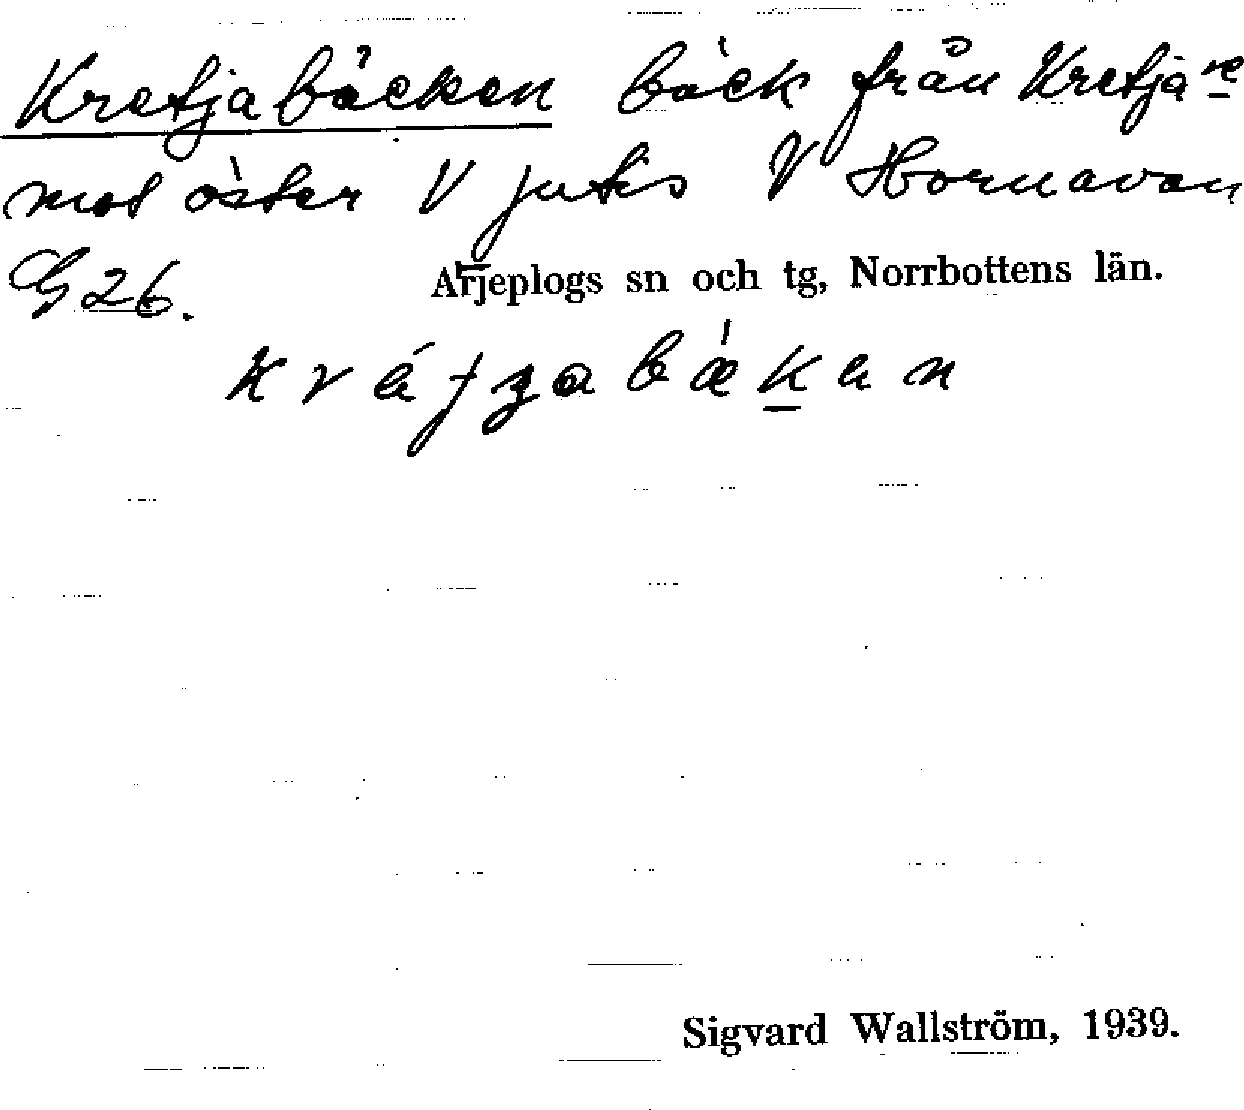 Kretjabäcken bäck från Kretjare
mot öster V jutis V Hornavan
G 26. Arjeplogs sn och tg, Norrbottens län.
Sigvard Wallström, 1939.